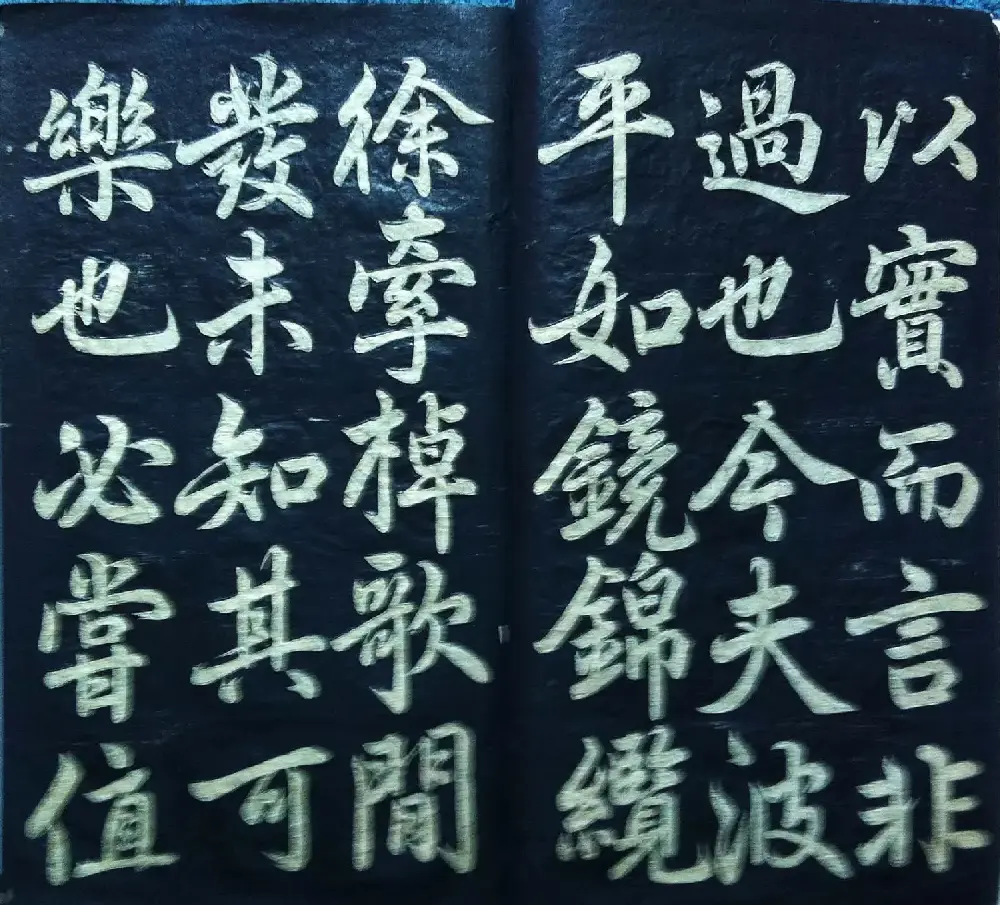 以實而言非
過也今夫波
平如鏡錦纜
徐牽棹歌間
發未知其可
樂也必嘗值